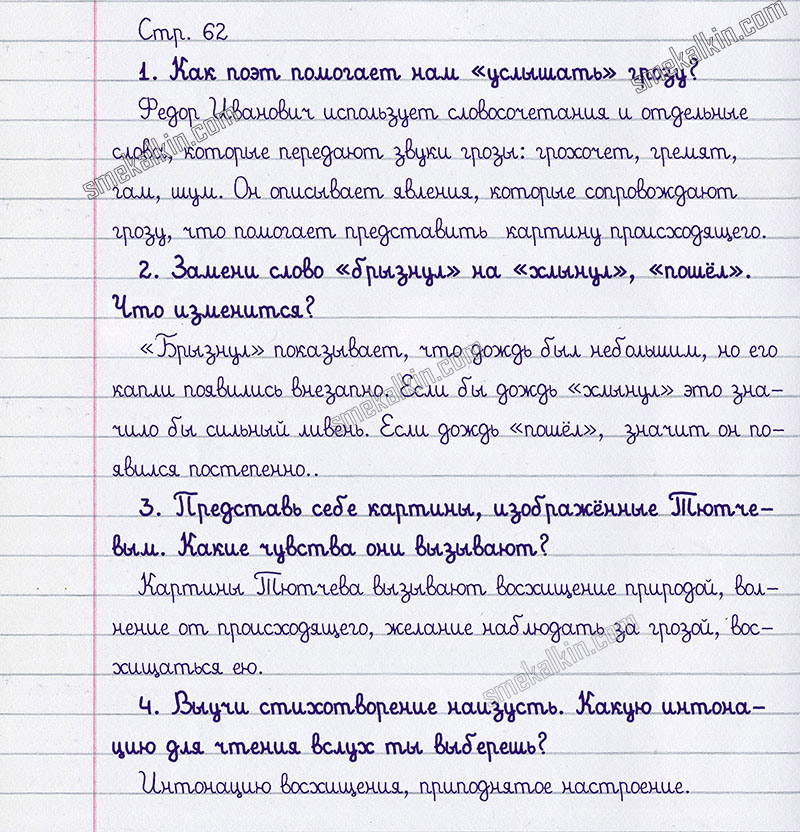 Стр. 62
1. Как поэт помогает нам «услышать» грозу?
Федор Иванович использует словосочетания и отдельные
слова, которые передают звуки грозы: грохочет, гремят,
гам, шум. Он описывает явления, которые сопровождают
грозу, что помогает представить картину происходящего.
2. Замени слово «брызнул» на «хлынул», «пошёл».
Что изменится?
«Брызнул» показывает, что дождь был небольшим, но его
капли появились внезапно. Если бы дождь «хлынул» это зна-
чило бы сильный ливень. Если дождь «пошёл», значит он по-
явился постепенно..
3. Представь себе картины, изображённые Тютче-
вым. Какие чувства они вызывают?
Картины Тютчева вызывают восхищение природой, вол-
нение от происходящего, желание наблюдать за грозой, вос-
хищаться ею.
4. Выучи стихотворение наизусть. Какую интона-
цию для чтения вслух ты выберешь?
Интонацию восхищения, приподнятое настроение.
smekalkin.com
smekalkin.com
smekalkin.com
smekalkin.com